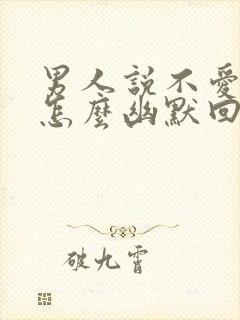 男人說不愛
怎麼幽默回
破九霄